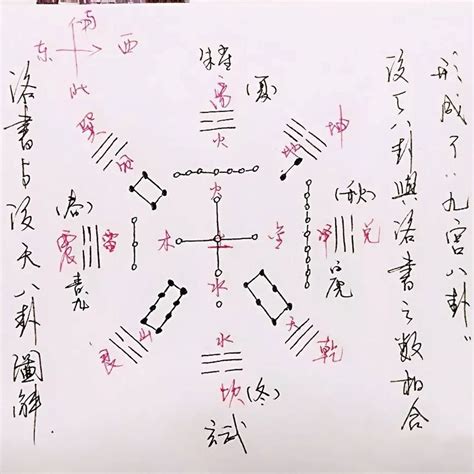 南
东 西
北
洛書与後天八卦圖解
朱雀
离 (夏)
火
巽
风
地
坤
火
(春)
震 雷
青龙
木
土
金
(秋)
泽 兑
白虎
水
艮
山
天
乾
水
坎 (冬)
玄武
後天八卦與洛書之数相合
形成了“九宫八卦”